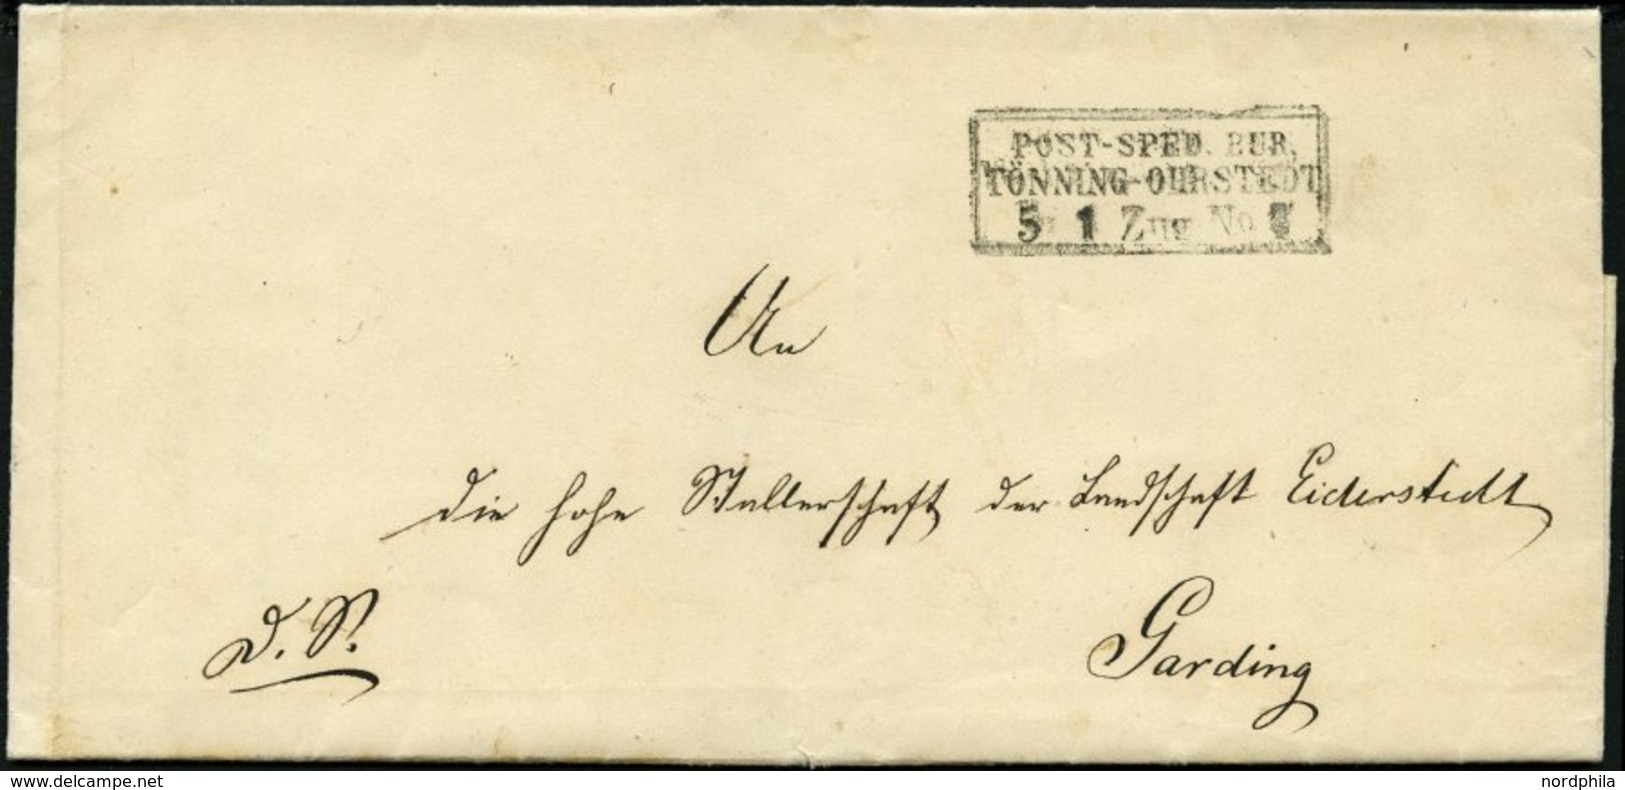 POST-SPED. BUR.
TÖNNING-OHRSTEDT
5 1 Zug No 7
An
die hohe Stallerschaft der Landschaft Eiderstedt
D. S.
Garding
www.delcampe.net
nordphila